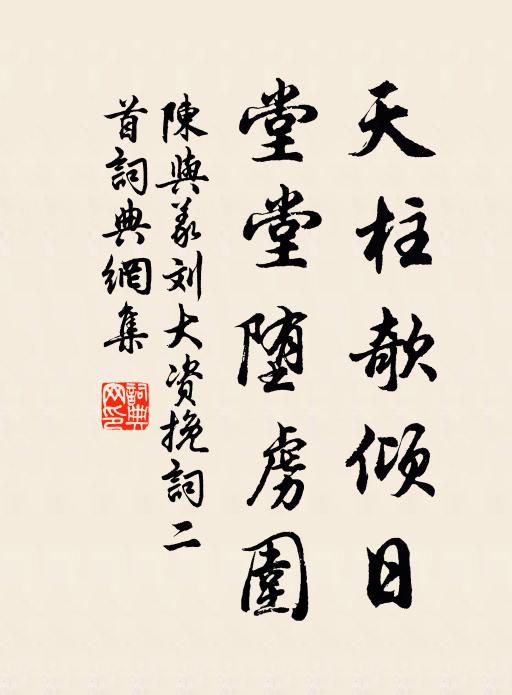 天柱欹傾日
堂堂墮虜圍
陳與義刘大资挽詞二
首詞典網集
詞典
网印